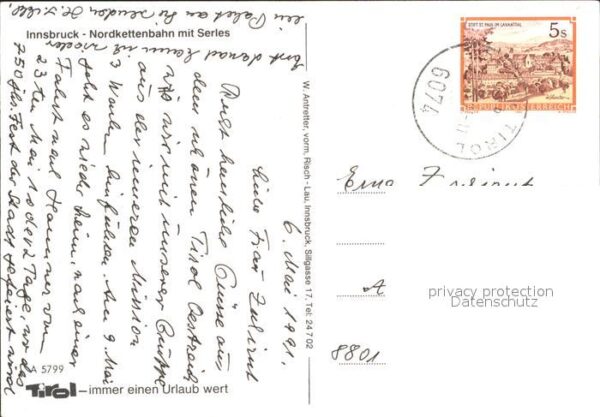 Innsbruck - Nordkettenbahn mit Serles
6. Mai 1991.
Liebe Frau
Recht herzliche Grüsse aus
dem schönen Tirol Oestreich
wo wir mit unserer Gruppe
aus der inneren Mission
3 Wochen Am 9. Mai
geht es wieder heim, nach einer
Fahrt nach Hannover vom
23 ten Mai 10 oder 12 Tage, wo das
750 jhr. Fest der Stadt gefeiert wird
Erst danach kann ich wieder
ein Paket an Sie senden,
A 5799
Tirol – immer einen Urlaub wert
W. Antretter, vorm. Risch - Lau, Innsbruck, Sillgasse 17, Tel. 24 7 02
STIFT ST. PAUL IM LAVANTTAL
5s
REPUBLIK ÖSTERREICH
6074
TIROL
A
8801
privacy protection
Datenschutz